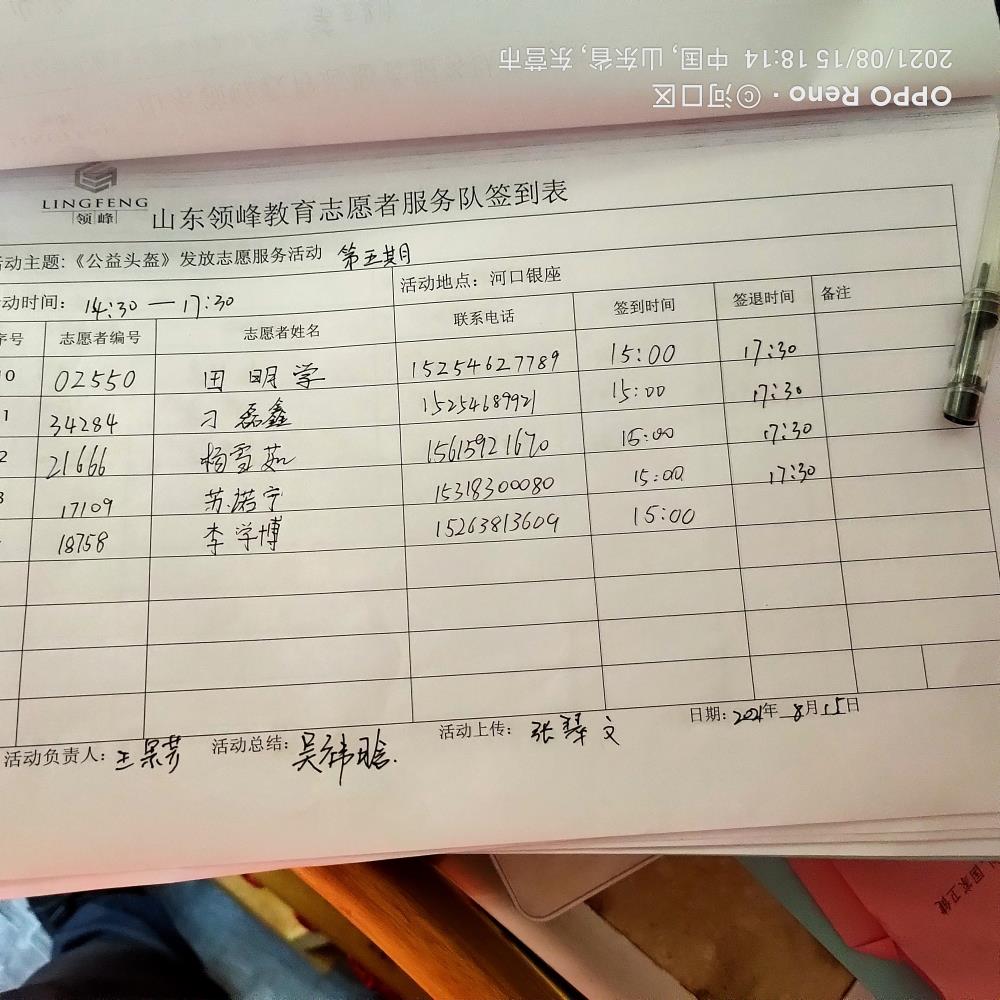 2021/08/15 18:14 中国, 山东省, 东营市
OPPO Reno · ©河口区
LINGFENG
领峰
山东领峰教育志愿者服务队签到表
活动主题:《公益头盔》发放志愿服务活动 第五期
动时间: 14:30 — 17:30 活动地点: 河口银座
序号 志愿者编号 志愿者姓名 联系电话 签到时间 签退时间 备注
10 02550 田明学 15254627789 15:00 17:30
1 34284 刁磊鑫 15254689921 15:00 17:30
2 21666 杨雪茹 15615921670 15:00 17:30
3 17109 苏诺宁 15318300080 15:00 17:30
18758 李学博 15263813609 15:00
活动负责人: 王 活动总结: 吴祎晗. 活动上传: 张琴文 日期: 2021年 8月15日
国家卫健